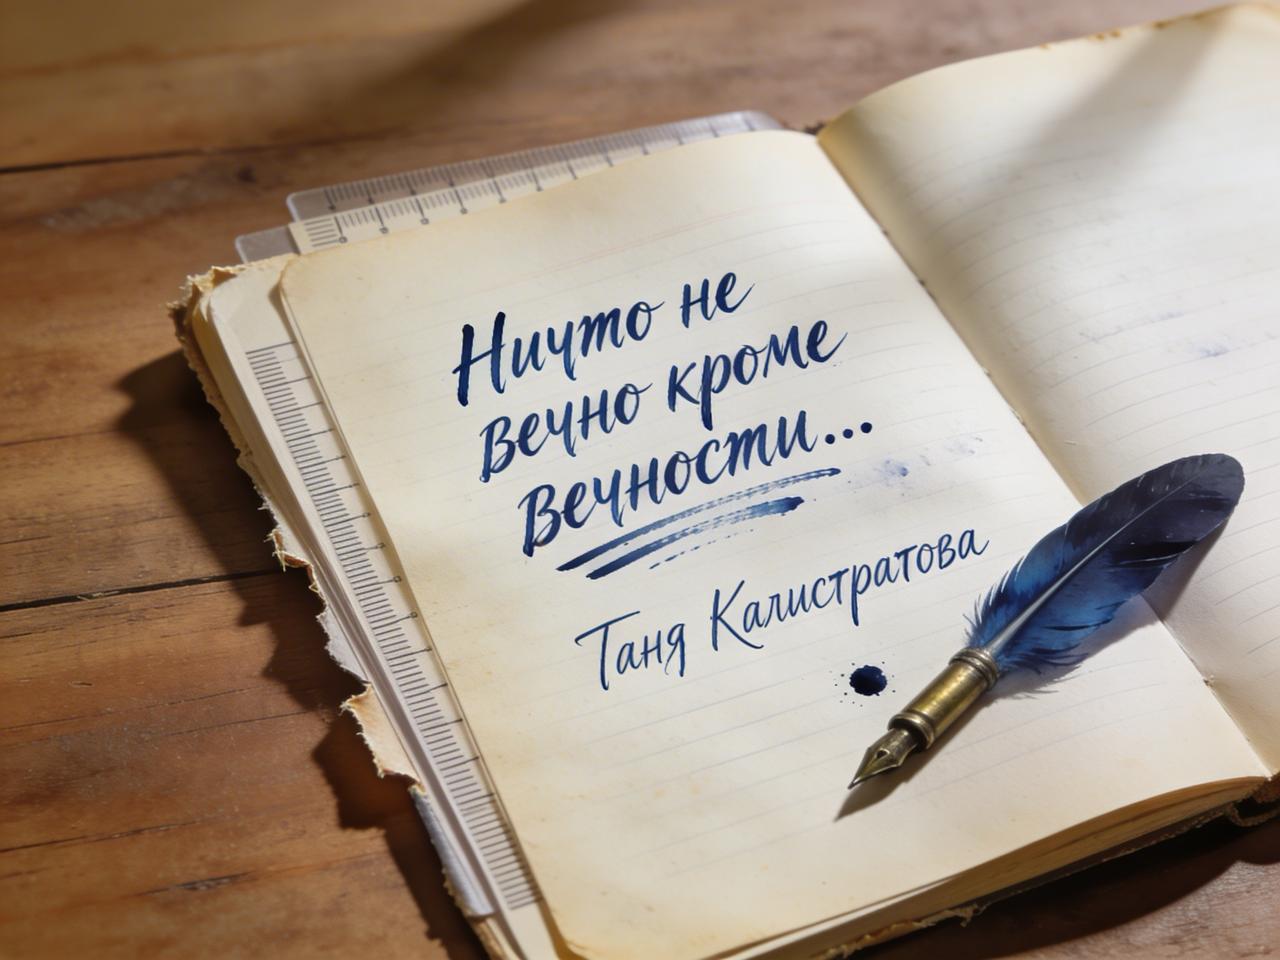 Ничто не
вечно кроме
Вечности...
Таня Калистратова